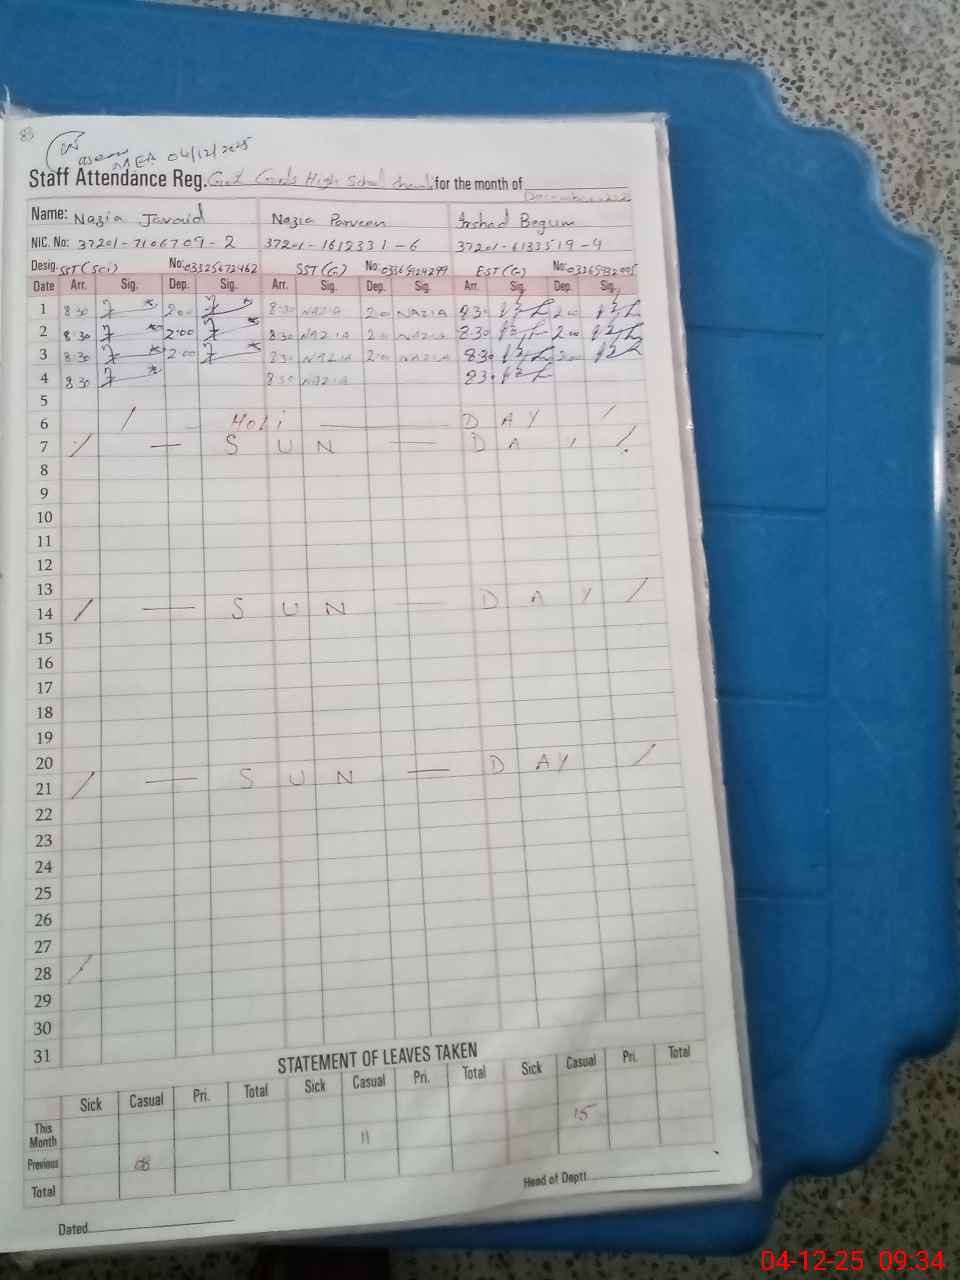 83
AEA 04/12/2025
Staff Attendance Reg. Govt Girls High School for the month of
December 2025
Name: Nazia Javaid Nazia Parveen Irshad Begum
NIC. No: 37201-7106709-2 37201-1612331-6 37201-6133519-4
Desig: SST(Sci) No: 03325672462 SST(G) No: EST(G) No:
Date Arr. Sig. Dep. Sig. Arr. Sig. Dep. Sig. Arr. Sig. Dep. Sig.
1 8:30 2:00 8:30 NAZIA 2:0 NAZIA 8:30 2:00
2 8:30 2:00 8:30 NAZIA 2:0 NAZIA 8:30 2:00
3 8:30 2:00 8:30 NAZIA 2:00 NAZIA 8:30 2:00
4 8:30 8:30 NAZIA 8:30
5
6 / HOLI — DAY /
7 / — SUN — DAY /
8
9
10
11
12
13
14 / — SUN — DAY /
15
16
17
18
19
20
21 / — SUN — DAY /
22
23
24
25
26
27
28 /
29
30
31
STATEMENT OF LEAVES TAKEN
Sick Casual Pri. Total Sick Casual Pri. Total Sick Casual Pri. Total
This Month
Previous 08 11 15
Total
Dated
Head of Deptt.
04-12-25 09:34